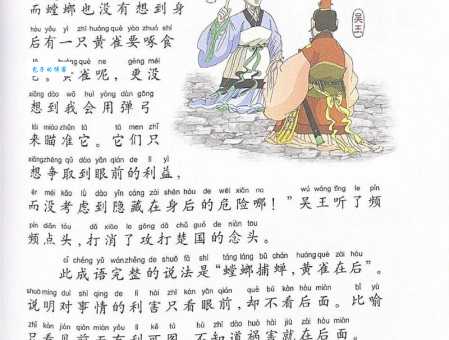 而螳螂也没有想到身
hòu yǒu yì zhī huáng què yào zhuó shí
后有一只黄雀要啄食
què ne gèng méi
它。黄雀呢，更没
xiǎng dào wǒ huì yòng dàn gōng
想到我会用弹弓
lái miáo zhǔn tā tā men zhǐ
来瞄准它。它们只
xiǎng zhēng qǔ dào yǎn qián de lì yì
想争取到眼前的利益，
ér méi kǎo lǜ dào yǐn cáng zài shēn hòu de wēi xiǎn na wú wáng tīng le pín
而没考虑到隐藏在身后的危险哪！”吴王听了频
pín diǎn tóu dǎ xiāo le gōng dǎ chǔ guó de niàn tou
频点头，打消了攻打楚国的念头。
cǐ chéng yǔ wán zhěng de shuō fǎ shì táng láng bǔ chán huáng què zài hòu
此成语完整的说法是“螳螂捕蝉，黄雀在后”。
shuō míng duì shì qing de lì hài zhǐ kàn yǎn qián què bú kàn hòu miàn bǐ yù
说明对事情的利害只看眼前，却不看后面。比喻
zhǐ kàn jiàn qián miàn yǒu lì kě tú bù zhī dào huò hài jiù zài hòu miàn
只看见前面有利可图，不知道祸害就在后面。
吴王